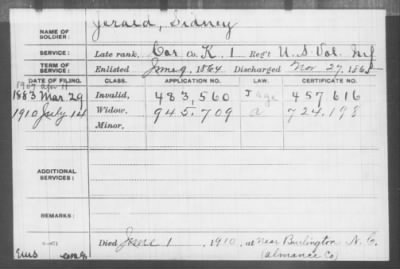 NAME OF SOLDIER: Jerald, Sidney
SERVICE: Late rank, Cor Co. K, 1 Reg't U.S. Vol. Inf
TERM OF SERVICE: Enlisted June 9, 1864 Discharged Nov 27, 1865
DATE OF FILING. CLASS. APPLICATION NO. LAW. CERTIFICATE NO.
1907 Apr 11
1883 Mar 29 Invalid, 483,560 J Age 457616
1910 July 14 Widow, 945,709 a 724.198
Minor,
ADDITIONAL SERVICES:
REMARKS:
Died June 1, 1910, at near Burlington N.C.
(Almance Co)